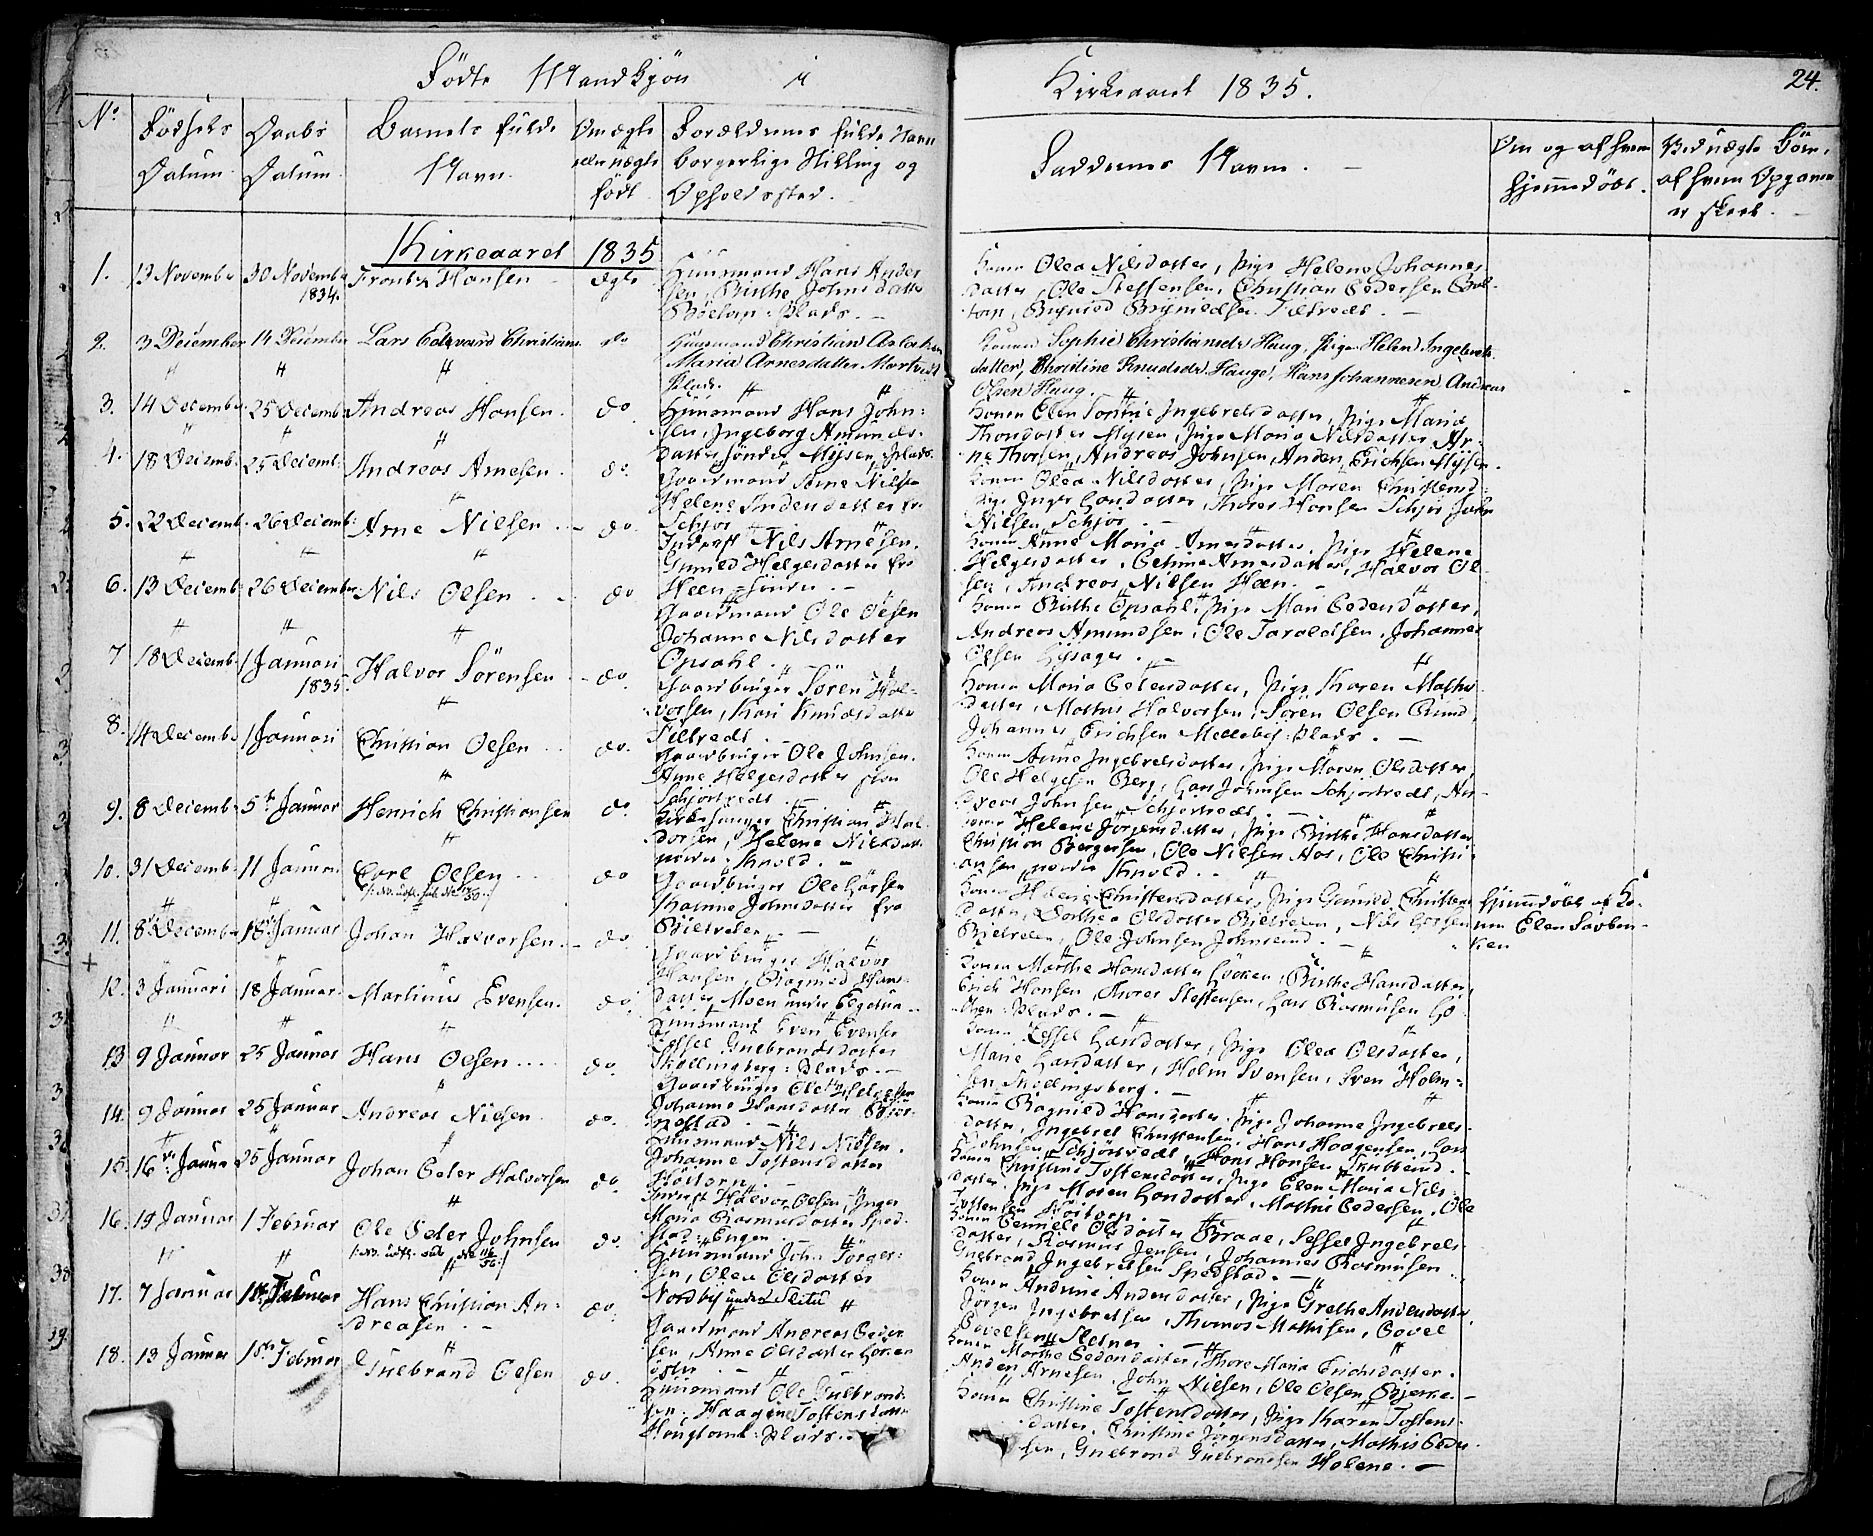 Födte Mandkjön i
Kirkeaaret 1835.
24.
No
Födsels Datum
Daabs Datum
Barnets fulde Navn.
Om ægte eller uægte født
Forældrenes fulde Navn borgerlige Stilling og Opholdssted.
Faddernes Navne.
Om og af hvem hjemmedøbt.
Ved uægte Börn, af hvem Opgaven er skeet.
Kirkeaaret 1835
1. 13 Novembr 30 Novembr 1834. Frantz Hansen Ægte
Huusmand Hans Andersen, Birthe Johnsdatter Plads.
Konen Olea Nilsdatter, Pige Helene Johannes
datter, Ole Steffensen, Christian Pedersen
2. 3 December 14 December Lars Edevard Christians. do
Huusmand Christian Aslaksen
Maria Arnesdatter Mortvedt
Plads.
Konen Sophie Christiansdr Haug, Pige Helen Ingebrets
datter, Christine Knudsdr Hauge, Hans Johannesen Andreas
Olsen Haug.
3. 14 Decembr. 25 Decembr Andreas Hansen. do
Huusmand Hans John:
sen, Ingeborg Amunds:
datter, söndre Mysen Plads.
Thorsdatter Mysen, Pige Maria Nilsdatter, Ar-
ne Thorsen, Andreas Johnsen, Anders Erichsen Mysen.
4. 18 Decemb. 25 Decemb: Andreas Arnesen. do.
Gaardmand Arne Nilsen
Helene Andersdatter fra
Schjor
Konen Olea Nilsdatter, Pige Maren Christensd:
Pige Inger Larsdatter, Thores Hansen Schjor John
Nilsen Schjor.
5. 22 Decemb. 26 Decemb: Arne Nilsen. do.
Inderst Nils Arnesen.
Gunild Helgesdatter fra
Heen
Konen Anne Maria Arnesdatter, Pige Helene
Helgesdatter, Arnesdatter, Halvor Ol-
sen, Andreas Nilsen Heen.
6. 13 Decemb: 26 December Nils Olsen. do
Gaardmand Ole Olsen
Johanne Nilsdatter
Opsahl.
Konen Birthe Opsahl, Pige Mari Pedersdatter,
Andreas Amundsen, Ole Taraldsen, Johannes
Olsen
7 18 Decemb. 1 Januari 1835. Halvor Sörensen do.
Gaardbruger Sören Hal-
vorsen, Kari Knudsdatter
Konen Maria Pedersdatter, Pige Karen Mathis
datter, Mathis Halvorsen, Sören Olsen
Johannes Erichsen Melleby Plads.
8. 14 Decemb. 1 Januari Christian Olsen do.
Gaardbruger Ole Johnsen.
Anne Helgesdatter fra
Schjörtvedt
Konen Anne Ingebretsdatter, Pige Maren Olsdatter,
Ole Helgesen Berg, Lars Johnsen Schjortvedt, An-
dreas Johnsen Schjortvedt.
9. 8 Decemb. 5te Januar Henrich Christiansen do.
Kirkesanger Christian Hal-
vorsen, Helene Nilsdatter
nedre Skuold.
Konen Helene Jörgensdatter, Pige Birthe Hansdatter
Christian Bergersen, Ole Nilsen Aas, Ole Christi-
ansen, nedre Skuold.
10. 31 Decemb. 11 Januar Carl Olsen do
Gaardbruger Ole Larsen
Johnsdatter fra
Konen Helene Christensdatter, Pige Gunild Christens
datter, Dorthea Olsdatter, Nils Larsen
Ole Johnsen
Hjemmedöbt af Ko-
nen Elen
11. 8de Decembr 18de Januar Johan Halvorsen. do.
Gaardbruger Halvor
Hansen, Ragnild Hans-
datter, Moen under Eegetun
Konen Marthe Hansdatter, Birthe Hansdatter,
Erich Hansen, Thores Steffensen, Lars Rasmusen
Plads.
12. 3 Januari 18 Januar. Martinus Evensen. do.
Huusmand Even Evensen
Sessel Gulbrandsdatter
Skollingberg: Plads.
Konen Sessel Larsdatter, Pige Olea Olsdatter,
Marie Larsdatter, Holm Svensen, Sven Holm-
sen Skollingsberg.
13 9 Januar 25 Januar Hans Olsen .... do.
Gaardbruger Ole
Johanne Hansdatter
Konen Ragnild Hansdatter, Pige Johanne Ingebrets-
datter, Ingebret Christensen, Hans Haagensen, Lars
14. 9 Januar 25 Januar Andreas Nilsen do.
Huusmand Nils Nilsen.
Johanne Tostensdatter
Höitorp.
Konen Christine Tostensdatter, Pige Elen Maria Nils-
datter, Pige Maren Larsdatter, Mathis Pedersen, Ole
Tostensen Höitorp.
15. 16de Januar 25 Januar Johan Peter Halvorsen do.
Inderst Halvor Olsen, Inger
Maria Rasmusdatter Sped-
stad: Engen
Konen Pernille Olsdatter Braae, Sessel Ingebrets-
datter, Rasmus Jensen, Johannes Rasmusen
Gulbrand Ingebretsen Spedstad.
16. 19 Januar 1 Februar Ole Peder Johnsen do.
Huusmand John Jörgen:
sen, Olea Olsdatter
Nordby under Slitu
Konen Andrine Andersdatter, Pige Grethe Andersdatter,
Jörgen Ingebretsen, Thomas Mathisen, Povel
Povelsen Sletner.
17. 7 Januar 15de Februar Hans Christian An-
dreasen. do.
Gaardmand Andreas Peder
sen, Anne Olsdatter
östre
Konen Marthe Pedersdatter, Thore Maria Erichsdatter,
Anders Arnesen, John Nilsen, Ole Olsen Bjerke
18. 13 Januar 15de Februar Gulbrand Olsen do.
Huusmand Ole Gulbrand-
sen, Haagine Tostensdatter
Plads.
Konen Christine Tostensdatter, Pige Karen Tostens-
datter, Christine Jörgensdatter, Mathis Peder
sen, Gulbrand Gulbrandsen Holene.